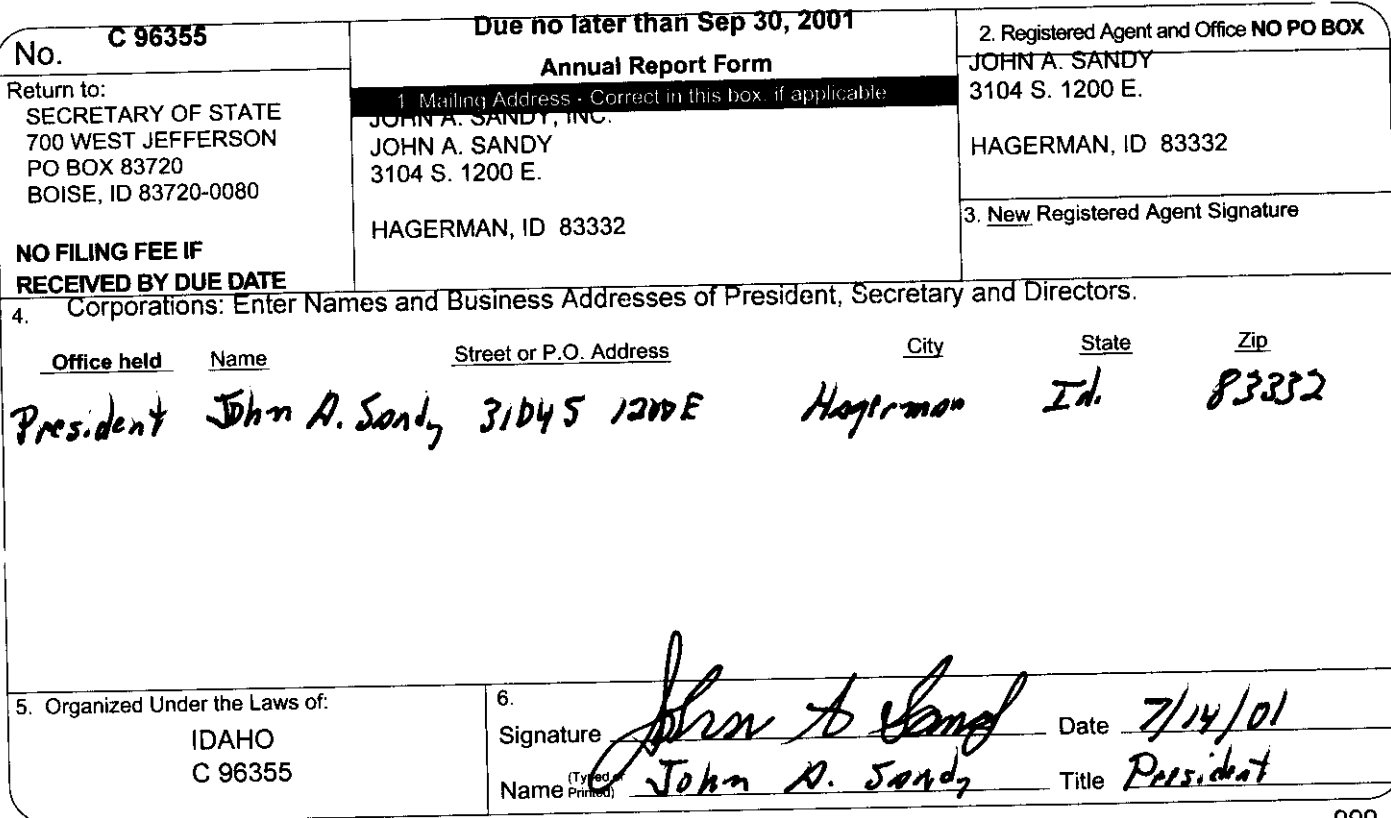 No. C 96355
Return to:
SECRETARY OF STATE
700 WEST JEFFERSON
PO BOX 83720
BOISE, ID 83720-0080
NO FILING FEE IF
RECEIVED BY DUE DATE
Due no later than Sep 30, 2001
Annual Report Form
1. Mailing Address - Correct in this box, if applicable
JOHN A. SANDY, INC.
JOHN A. SANDY
3104 S. 1200 E.
HAGERMAN, ID 83332
2. Registered Agent and Office NO PO BOX
JOHN A. SANDY
3104 S. 1200 E.
HAGERMAN, ID 83332
3. New Registered Agent Signature
4. Corporations: Enter Names and Business Addresses of President, Secretary and Directors.
Office held Name Street or P.O. Address City State Zip
President John A. Sandy 3104 S 1200 E Hagerman Id. 83332
5. Organized Under the Laws of:
IDAHO
C 96355
6.
Signature John A Sandy Date 7/14/01
Name (Typed or Printed) John A. Sandy Title President